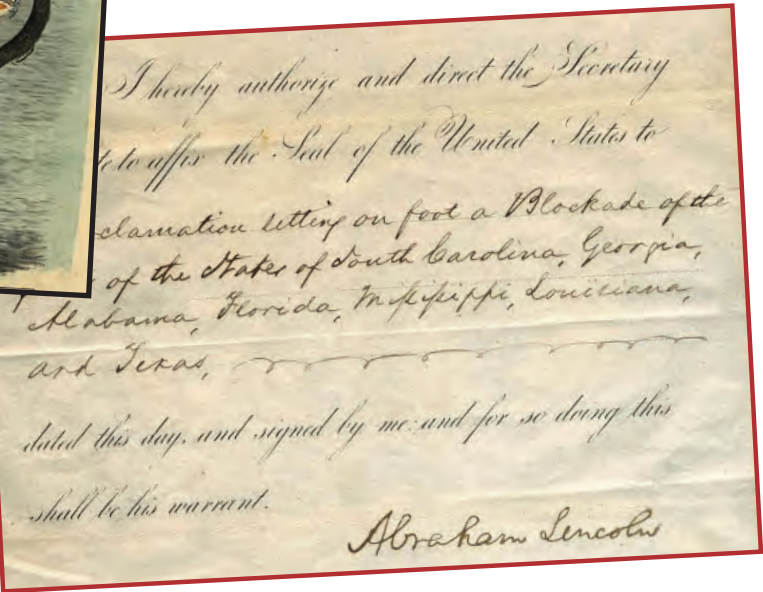 I hereby authorize and direct the Secretary
te to affix the Seal of the United States to
clamation setting on foot a Blockade of the
of the States of South Carolina, Georgia,
Alabama, Florida, Mississippi, Louisiana,
and Texas,
dated this day, and signed by me: and for so doing this
shall be his warrant.
Abraham Lincoln